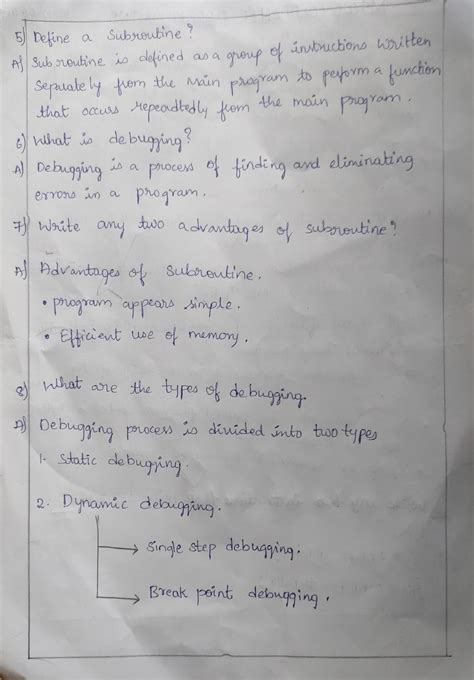 5) Define a Subroutine?
A) Subroutine is defined as a group of instructions written
Separately from the main program to perform a function
that occurs repeadtedly from the main program.
6) What is debugging?
A) Debugging is a process of finding and eliminating
errors in a program.
7) Write any two advantages of subroutine?
A) Advantages of subroutine.
• program appears simple.
• Efficient use of memory.
8) What are the types of debugging.
A) Debugging process is divided into two types
1. Static debugging.
2. Dynamic debugging.
→ Single step debugging.
→ Break point debugging.